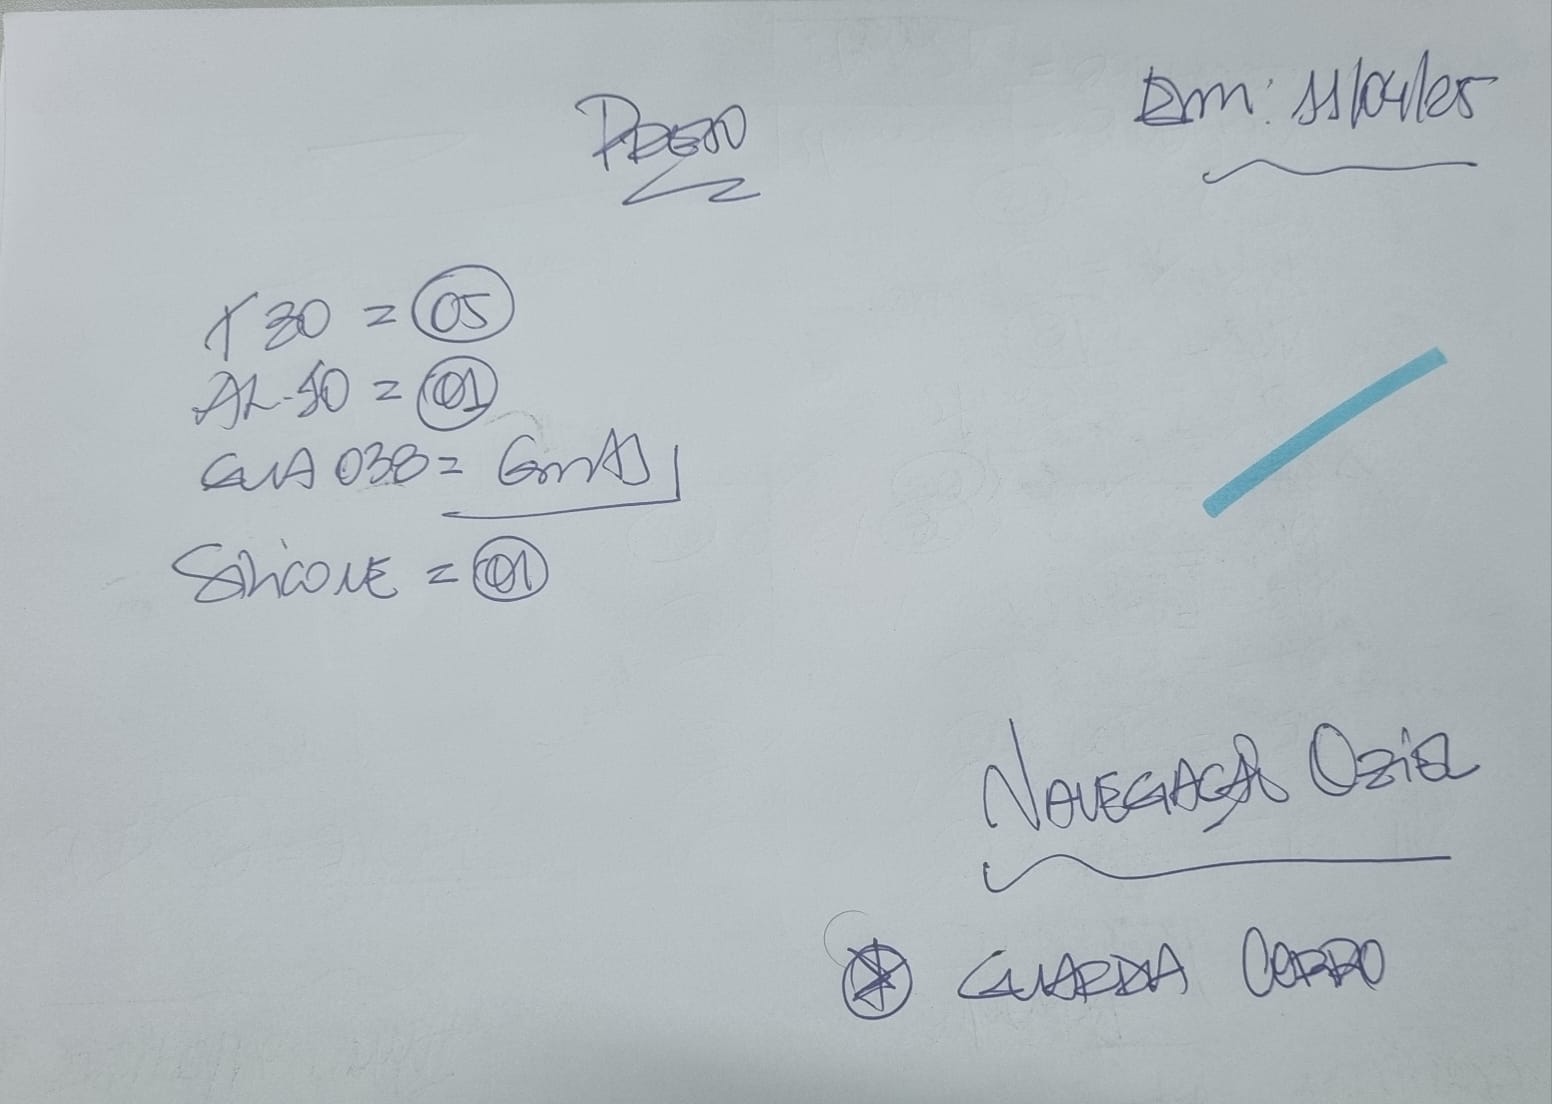 Em: 11/04/25
T30 = 05
AL-50 = 01
GUA 038 = 6mts
Silicone = 01
Navegação Oziel
GUARDA CORPO